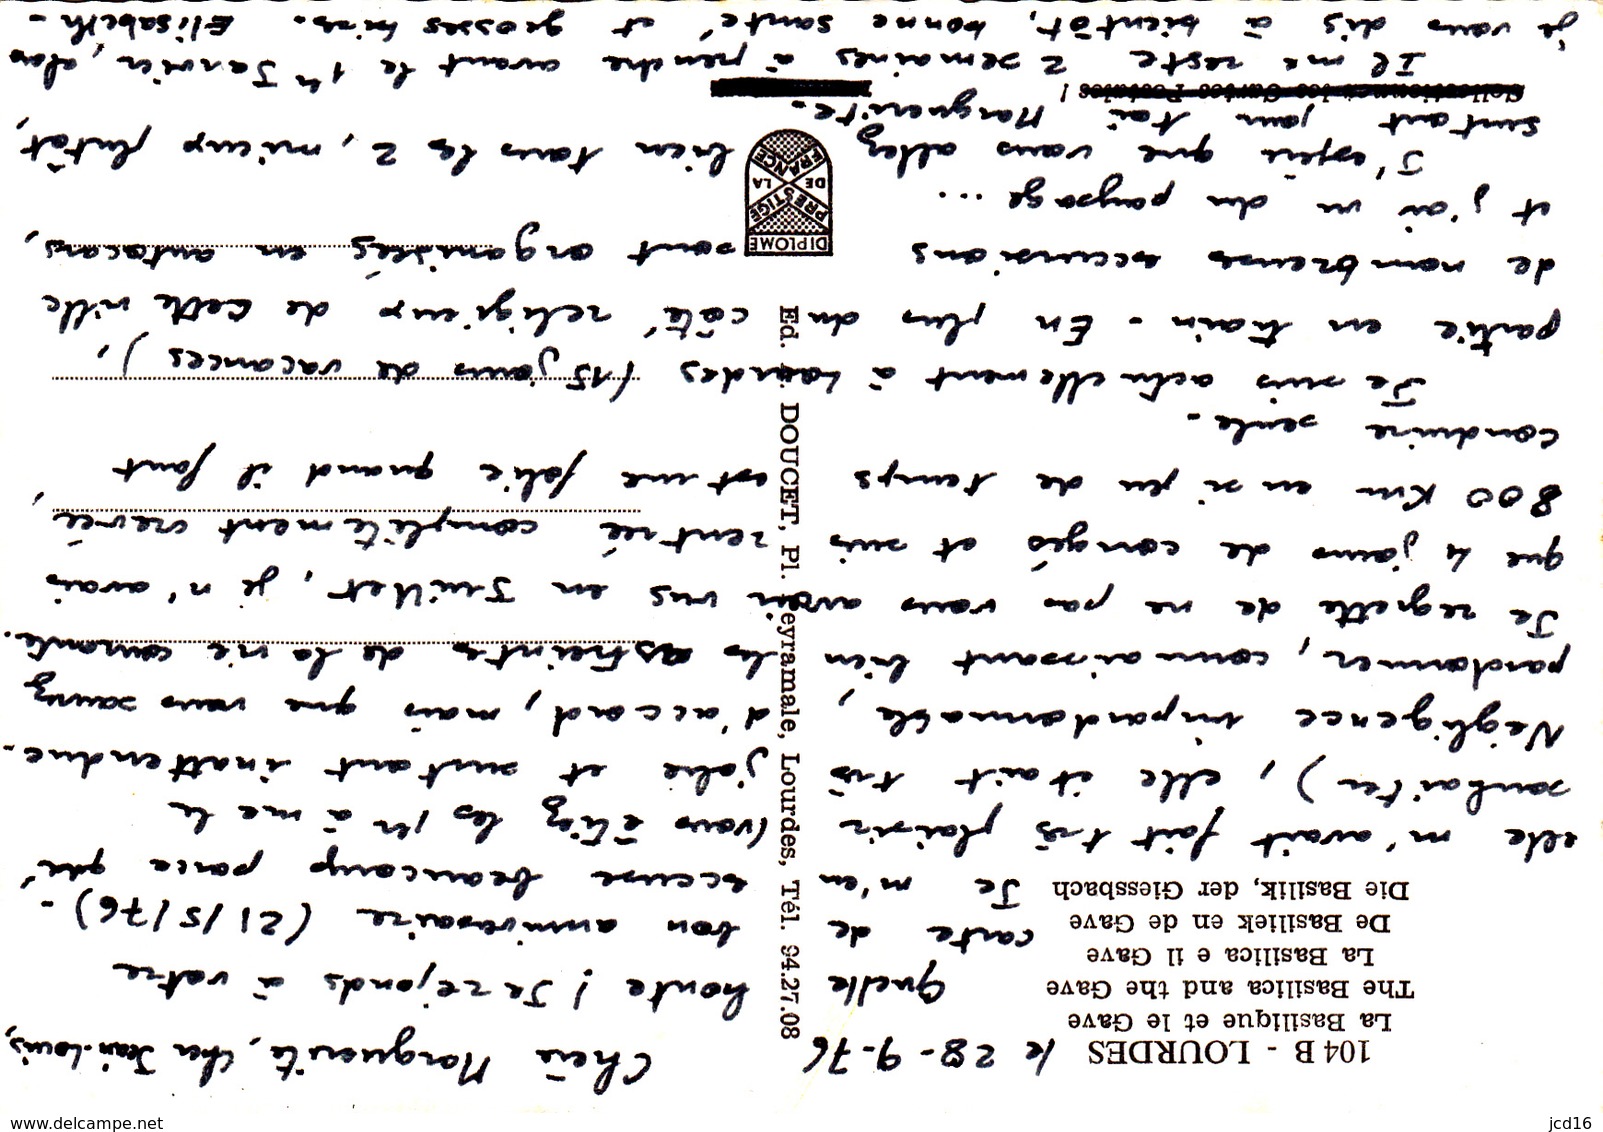 104 B - LOURDES
La Basilique et le Gave
The Basilica and the Gave
La Basilica e il Gave
De Basiliek en de Gave
Die Basilik, der Giessbach
le 28-9-76
Chère Marguerite, cher Jean-Louis,
Quelle honte ! Je réponds à votre
carte de bon anniversaire (21/5/76) -
Je m'en accuse beaucoup parce que
elle m'avait fait très plaisir (vous étiez les 1er à me le
souhaiter), elle était très jolie et surtout inattendue.
Négligence impardonnable, d'accord, mais que vous saurez
pardonner, connaissant bien les astreintes de la vie courante.
Je regrette de ne pas vous avoir vus en Juillet, je n'avais
que 4 jours de congés et suis rentrée complètement crevée,
800 Km en si peu de temps est une folie quand il faut
conduire seule -
Je suis actuellement à Lourdes (15 jours de vacances),
partie en train - En plus du côté religieux de cette ville
de nombreuses excursions sont organisées en autocars,
et j'ai vu du paysage ...
J'espère que vous allez bien tous les 2, mieux plutôt
surtout pour toi Marguerite.
Collectionnez les Cartes Postales !
Il me reste 2 semaines à prendre avant le 1er Janvier, alors
je vous dis à bientôt, bonne santé et grosses bises. Elisabeth -
Ed. DOUCET, Pl. Peyramale, Lourdes, Tél. 94.27.08
DIPLOME
PRESTIGE
DE LA
FRANCE
www.delcampe.net
jcd16